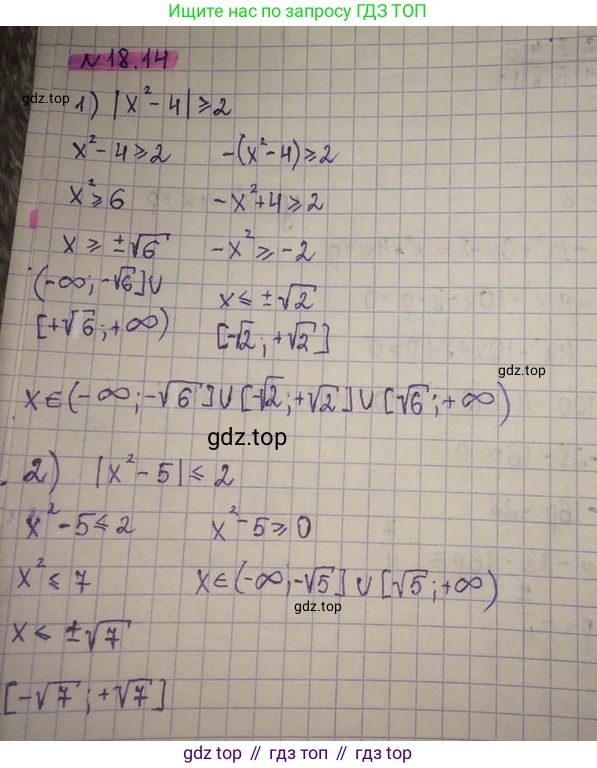 Ищите нас по запросу ГДЗ ТОП
N 18.14
gdz.top
1) |x² - 4| ⩾ 2
x² - 4 ⩾ 2 -(x² - 4) ⩾ 2
x² ⩾ 6 -x² + 4 ⩾ 2
x ⩾ ±√6 -x² ⩾ -2
(-∞; -√6] ∪ x ⩽ ±√2
[+√6; +∞) [-√2; +√2]
gdz.top
x ∈ (-∞; -√6] ∪ [-√2; +√2] ∪ [√6; +∞)
gdz.top
2) |x² - 5| ⩽ 2
x² - 5 ⩽ 2 x² - 5 ⩾ 0
x² ⩽ 7 x ∈ (-∞; -√5] ∪ [√5; +∞)
gdz.top
x ⩽ ±√7
[-√7; +√7]
gdz top // гдз топ // gdz.top // гдз топ